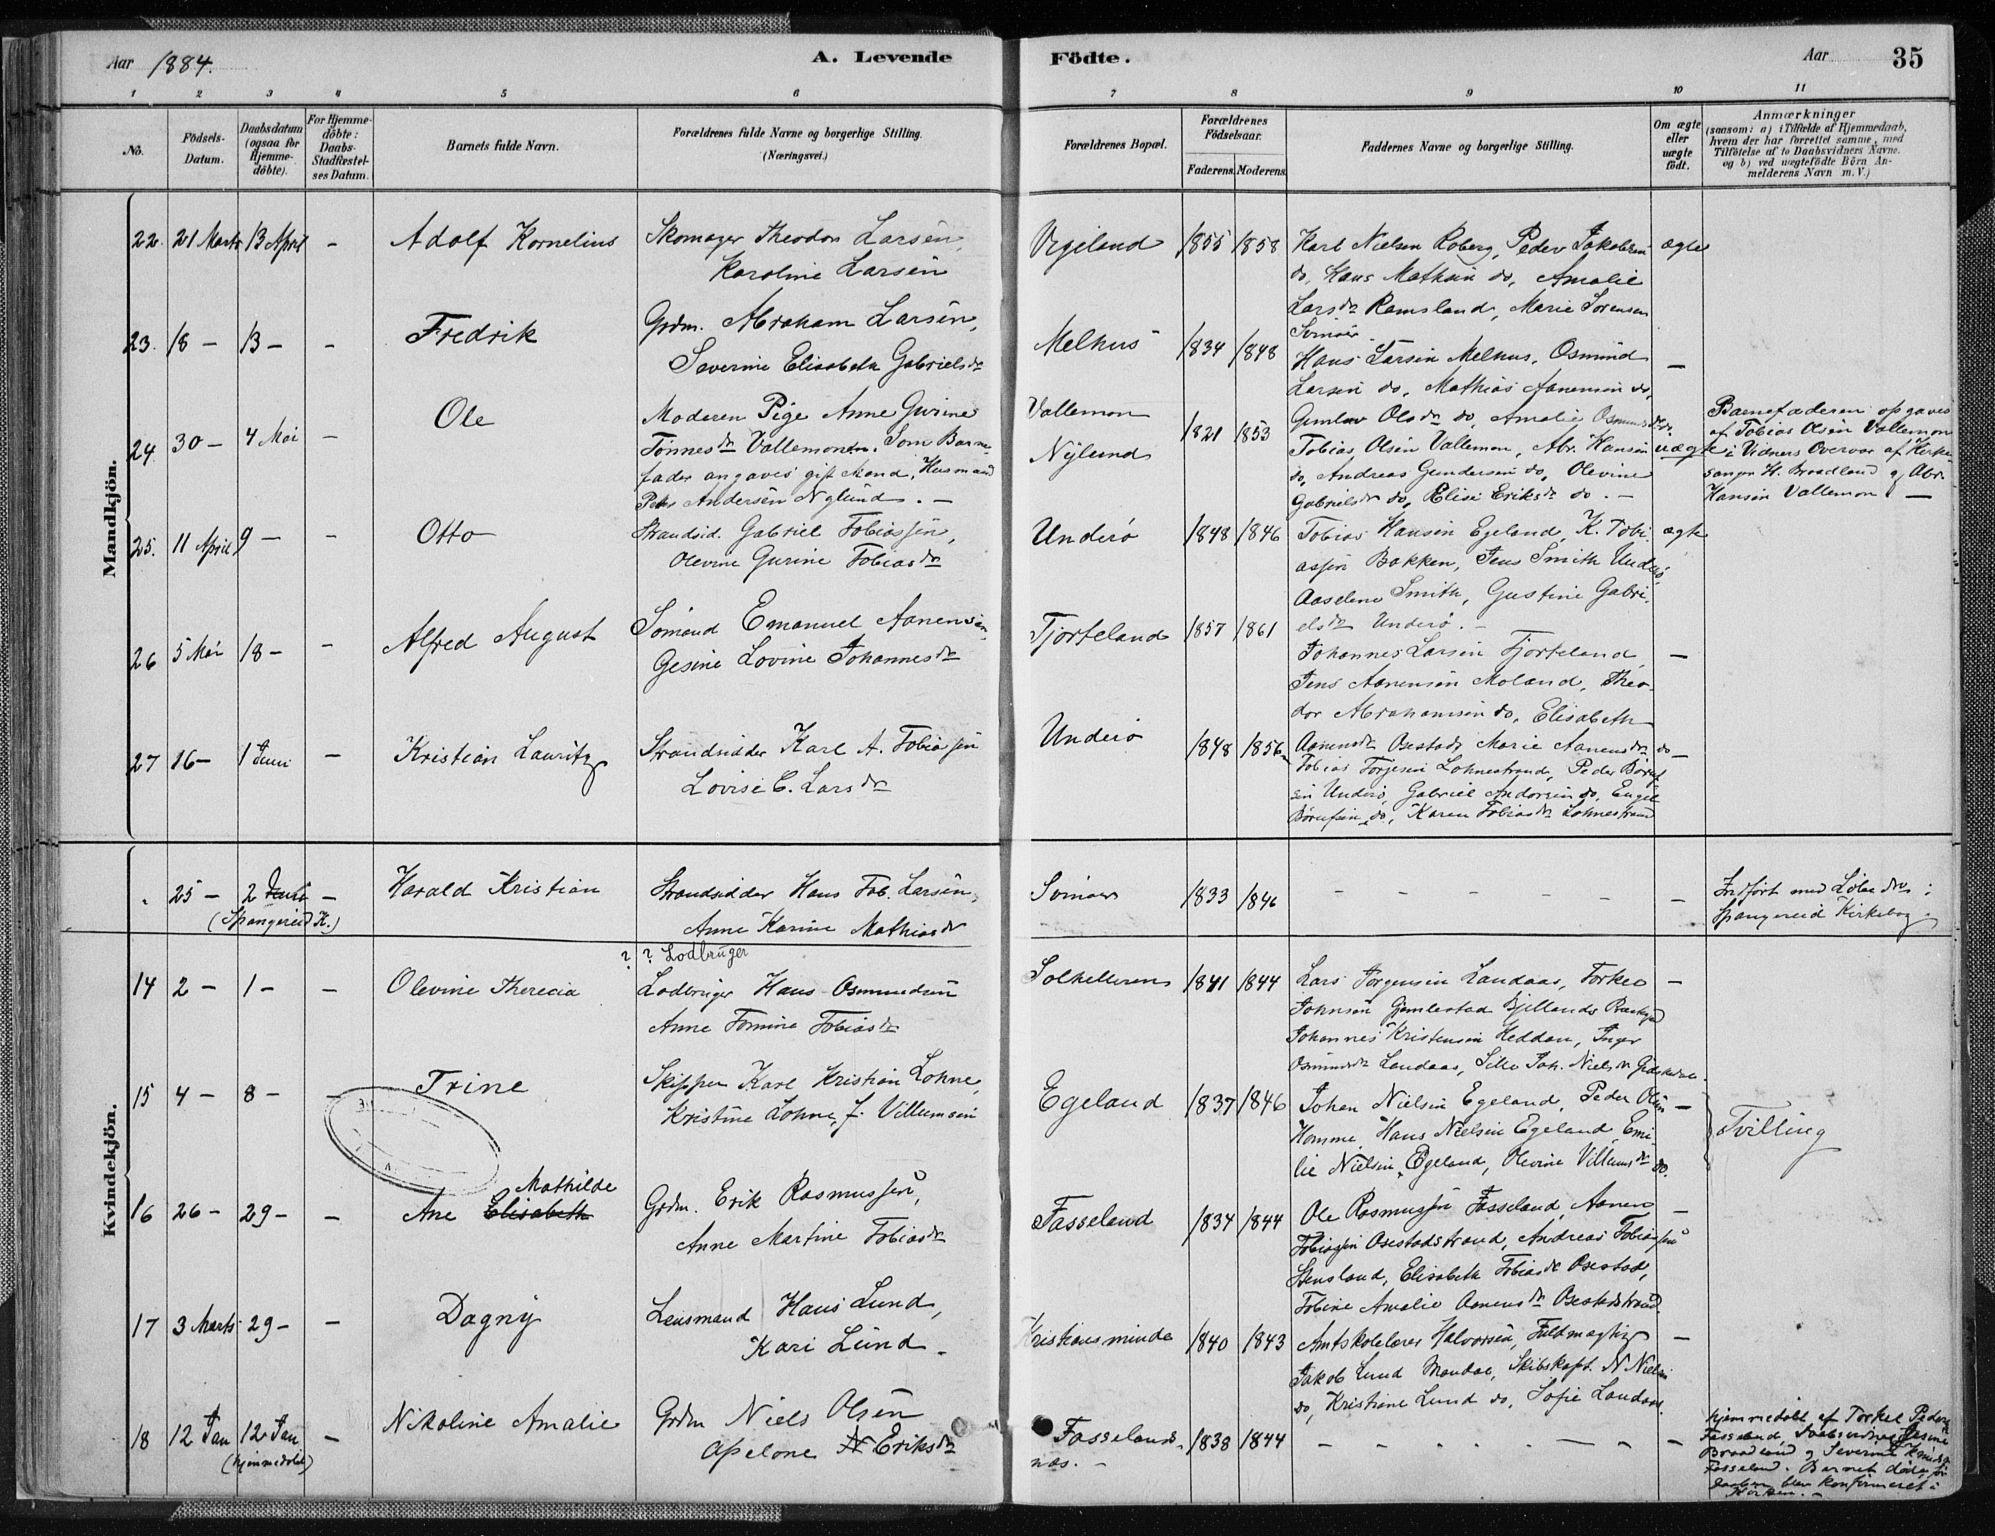 Aar 1884.
A. Levende Födte.
Aar
35
1 2 3 4 5 6 7 8 9 10 11
No.
Födsels-Datum.
Daabsdatum (ogsaa for Hjemme-döbte).
For Hjemme-döbte: Daabs-Stadfæstel-ses Datum.
Barnets fulde Navn.
Forældrenes fulde Navne og borgerlige Stilling.
(Næringsvei.)
Forældrenes Bopæl.
Forældrenes Födselsaar.
Faderens. Moderens.
Faddernes Navne og borgerlige Stilling.
Om ægte eller uægte födt.
Anmærkninger
(saasom: a) i Tilfælde af Hjemmedaab,
hvem der har forrettet samme, med
Tilföielse af to Daabsvidners Navne.
og b) ved uægtefödte Börn An-
melderens Navn m. V.)
Mandkjön.
22. 21 Marts 13 April - Adolf Kornelius
Skomager Theodor Larsen,
Karoline Larsen
Vigeland 1855 1858
Karl Nielsen Roberg, Peder Jakobsen
do, Hans Mathsen do, Amalie
Larsdr Ramsland, Marie Sørensen
ægte
23. 18 - 13 - - Fredrik
Grdm. Abraham Larsen,
Severine Elisabeth Gabrielsdr
Melhus 1834 1848
Hans Larsen Melhus, Osmund
Larsen do, Mathias Aanensen do,
Gunlav Olsdr do, Amalie Osmundsdr do.
-
24 30 - 4 Mai - Ole
Moderen Pige Anne Gurine
Tønnesdr Vallemoen. Som Barne-
fader angaves gift Mand, Husmand
Peder Andersen Nylund. -
Vallemon
Nylund
1821 1853
Tobias Olsen Vallemon, Abr. Hansen
do, Andreas Gundersen do, Olevine
Gabrielsdr do, Elise Eriksdr do. -
uægte
Barnefaderen opgaves
af Tobias Olsen Vallemon
i Vidners Overvær af Kirke-
sanger H. Braadland og Abr.
Hansen Vallemon -
25. 11 April 9 - - Otto
Strandsid. Gabriel Tobiassen,
Olevine Gurine Tobiasdr
Underø 1848 1846
Tobias Hansen Egeland, K. Tobi-
assen Bakken, Jens Smith Underø,
Aaselene Smith, Gustine Gabri-
elsdr Underø. -
ægte
26 5 Mai 18 - - Alfred August
Sømand Emanuel Aanensen,
Gesine Lovine Johannesdr
Tjorteland 1857 1861
Johannes Larsen Tjorteland,
Jens Aanensen Moland, Theo-
dor Abrahamsen do, Elisabeth
Aanensdr Osestad, Marie Aanensdr do
-
27 16 - 1 Juni - Kristian Lauritz
Strandsidder Karl A. Tobiassen
Lovise C. Larsdr
Underø 1848 1856
Tobias Torjesen Lohnestrand, Peder Børuf-
sen Underø, Gabriel Andersen do, Engel
Børufsen do, Karen Tobiasdr Lohnestrand
-
25 - 2 - Harald Kristian
(Spangereid K.)
Strandsidder Hans Tob. Larsen,
Anne Karine Mathiasdr
1833 1846
- - - - - -
Indført med Løbe No i
Spangereid Kirkebog.
Kvindekjön.
? ? Lodbruger
14 2 - 1 - - Olevine Therecia
Lodbruger Hans Osmundsen
Anne Tomine Tobiasdr
Solhelleren 1841 1844
Lars Jørgensen Landaas, Torkel
Johnsen Gjemlestad Bjellands
Johannes Kristensen Heddan, Inger
Osmundsdr Landaas,
-
15 4 - 8 - - Trine
Skipper Karl Kristian Lohne,
Kristine Lohne, f. Villumsen
Egeland 1837 1846
Johan Nielsen Egeland, Peder Olsen
Homme, Hans Nielsen Egeland, Emi-
lie Nielsen Egeland, Olevine Villumsdr do.
-
Tvilling
16 26 - 29 - - Ane Elisabeth Mathilde
Grdm. Erik Rasmussen,
Anne Martine Tobiasdr
Fasseland 1834 1844
Ole Rasmussen Fasseland, Aanen
Tobiassen Osestadstrand, Andreas Tobiassen
Stensland, Elisabeth Tobiasdr Osestad,
Tobine Amalie Aanensdr Osestadstrand
-
17 3 Marts 29 - - Dagny
Lensmand Hans Lund,
Kari Lund -
Kristiansminde 1840 1843
Amtskolelærer Halvorsen, Fuldmægtig
Jakob Lund Mandal, Skibskapt. N. Nielsen
do, Kristiane Lund do, Sofie Landaas.
-
18 12 Jan 12 Jan - Nikoline Amalie
(hjemmedøbt)
Grdm Niels Olsen
Aselone N Eriksdr
Fasselands-
næs. -
1838 1844
- - - - - - -
Hjemmedøbt af Torkel Peders.
Fasseland, Daabsvidner Gesine
Braadland og Severine
Fasseland. Barnet døde, før
Daaben blev konfirmeret i
Kirken. -